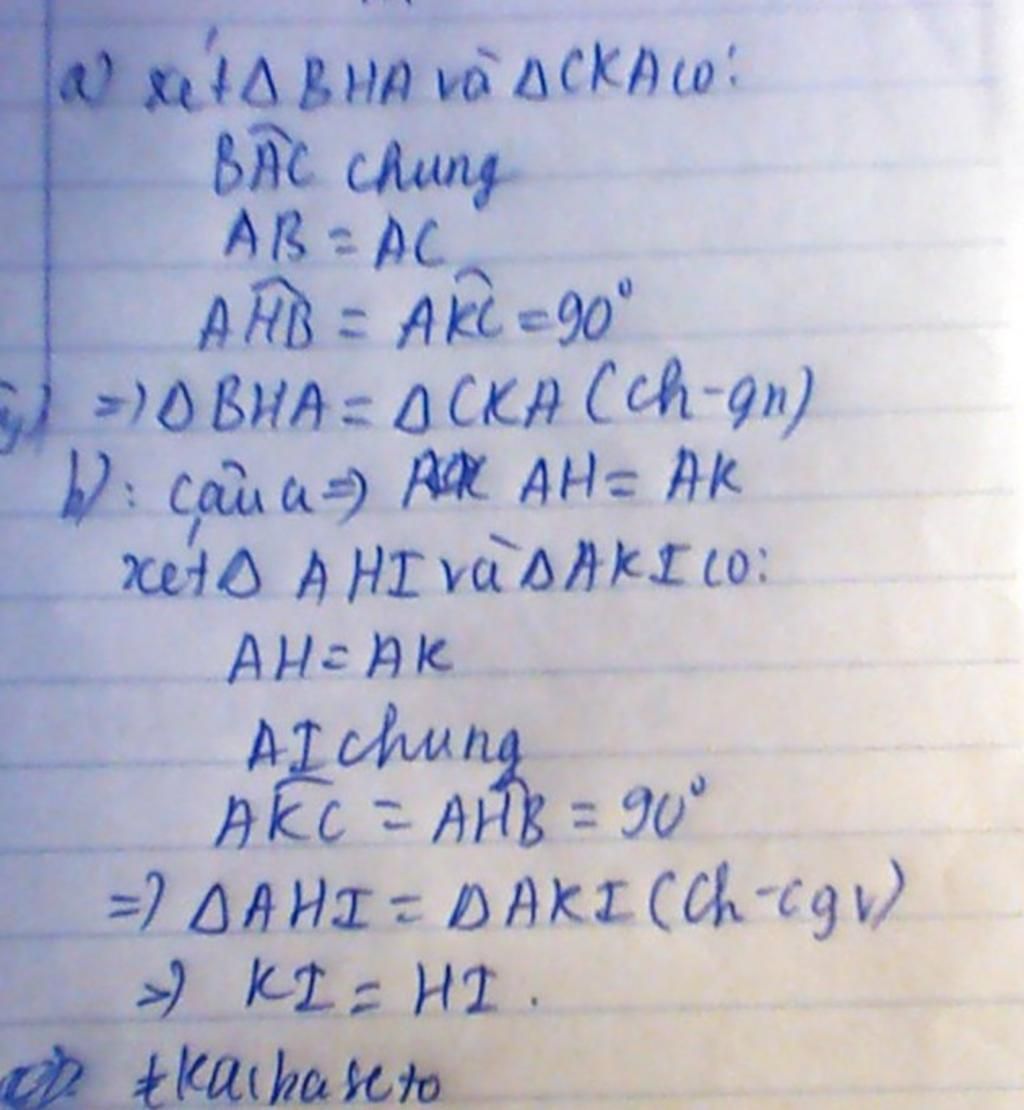 a) xét Δ BHA và Δ CKA có:
BAC chung
AB = AC
AHB = AKC = 90°
=> Δ BHA = Δ CKA (ch-gn)
b): câu a => AH = AK
xét Δ AHI và Δ AKI có:
AH = AK
AI chung
AKC = AHB = 90°
=> Δ AHI = Δ AKI (ch-cgv)
=> KI = HI.